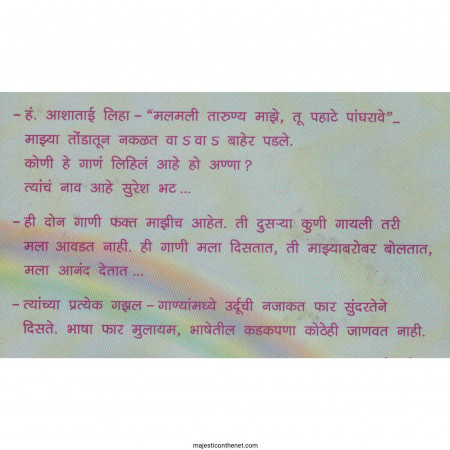 - हं. आशाताई लिहा - "मलमली तारुण्य माझे, तू पहाटे पांघरावे"_
माझ्या तोंडातून नकळत वा ऽ वा ऽ बाहेर पडले.
कोणी हे गाणं लिहिलं आहे हो अण्णा ?
त्यांचं नाव आहे सुरेश भट ...
- ही दोन गाणी फक्त माझीच आहेत. ती दुसऱ्या कुणी गायली तरी
मला आवडत नाही. ही गाणी मला दिसतात, ती माझ्याबरोबर बोलतात,
मला आनंद देतात ...
- त्यांच्या प्रत्येक गझल - गाण्यांमध्ये उर्दूची नजाकत फार सुंदरतेने
दिसते. भाषा फार मुलायम, भाषेतील कडकपणा कोठेही जाणवत नाही.
majesticonthenet.com